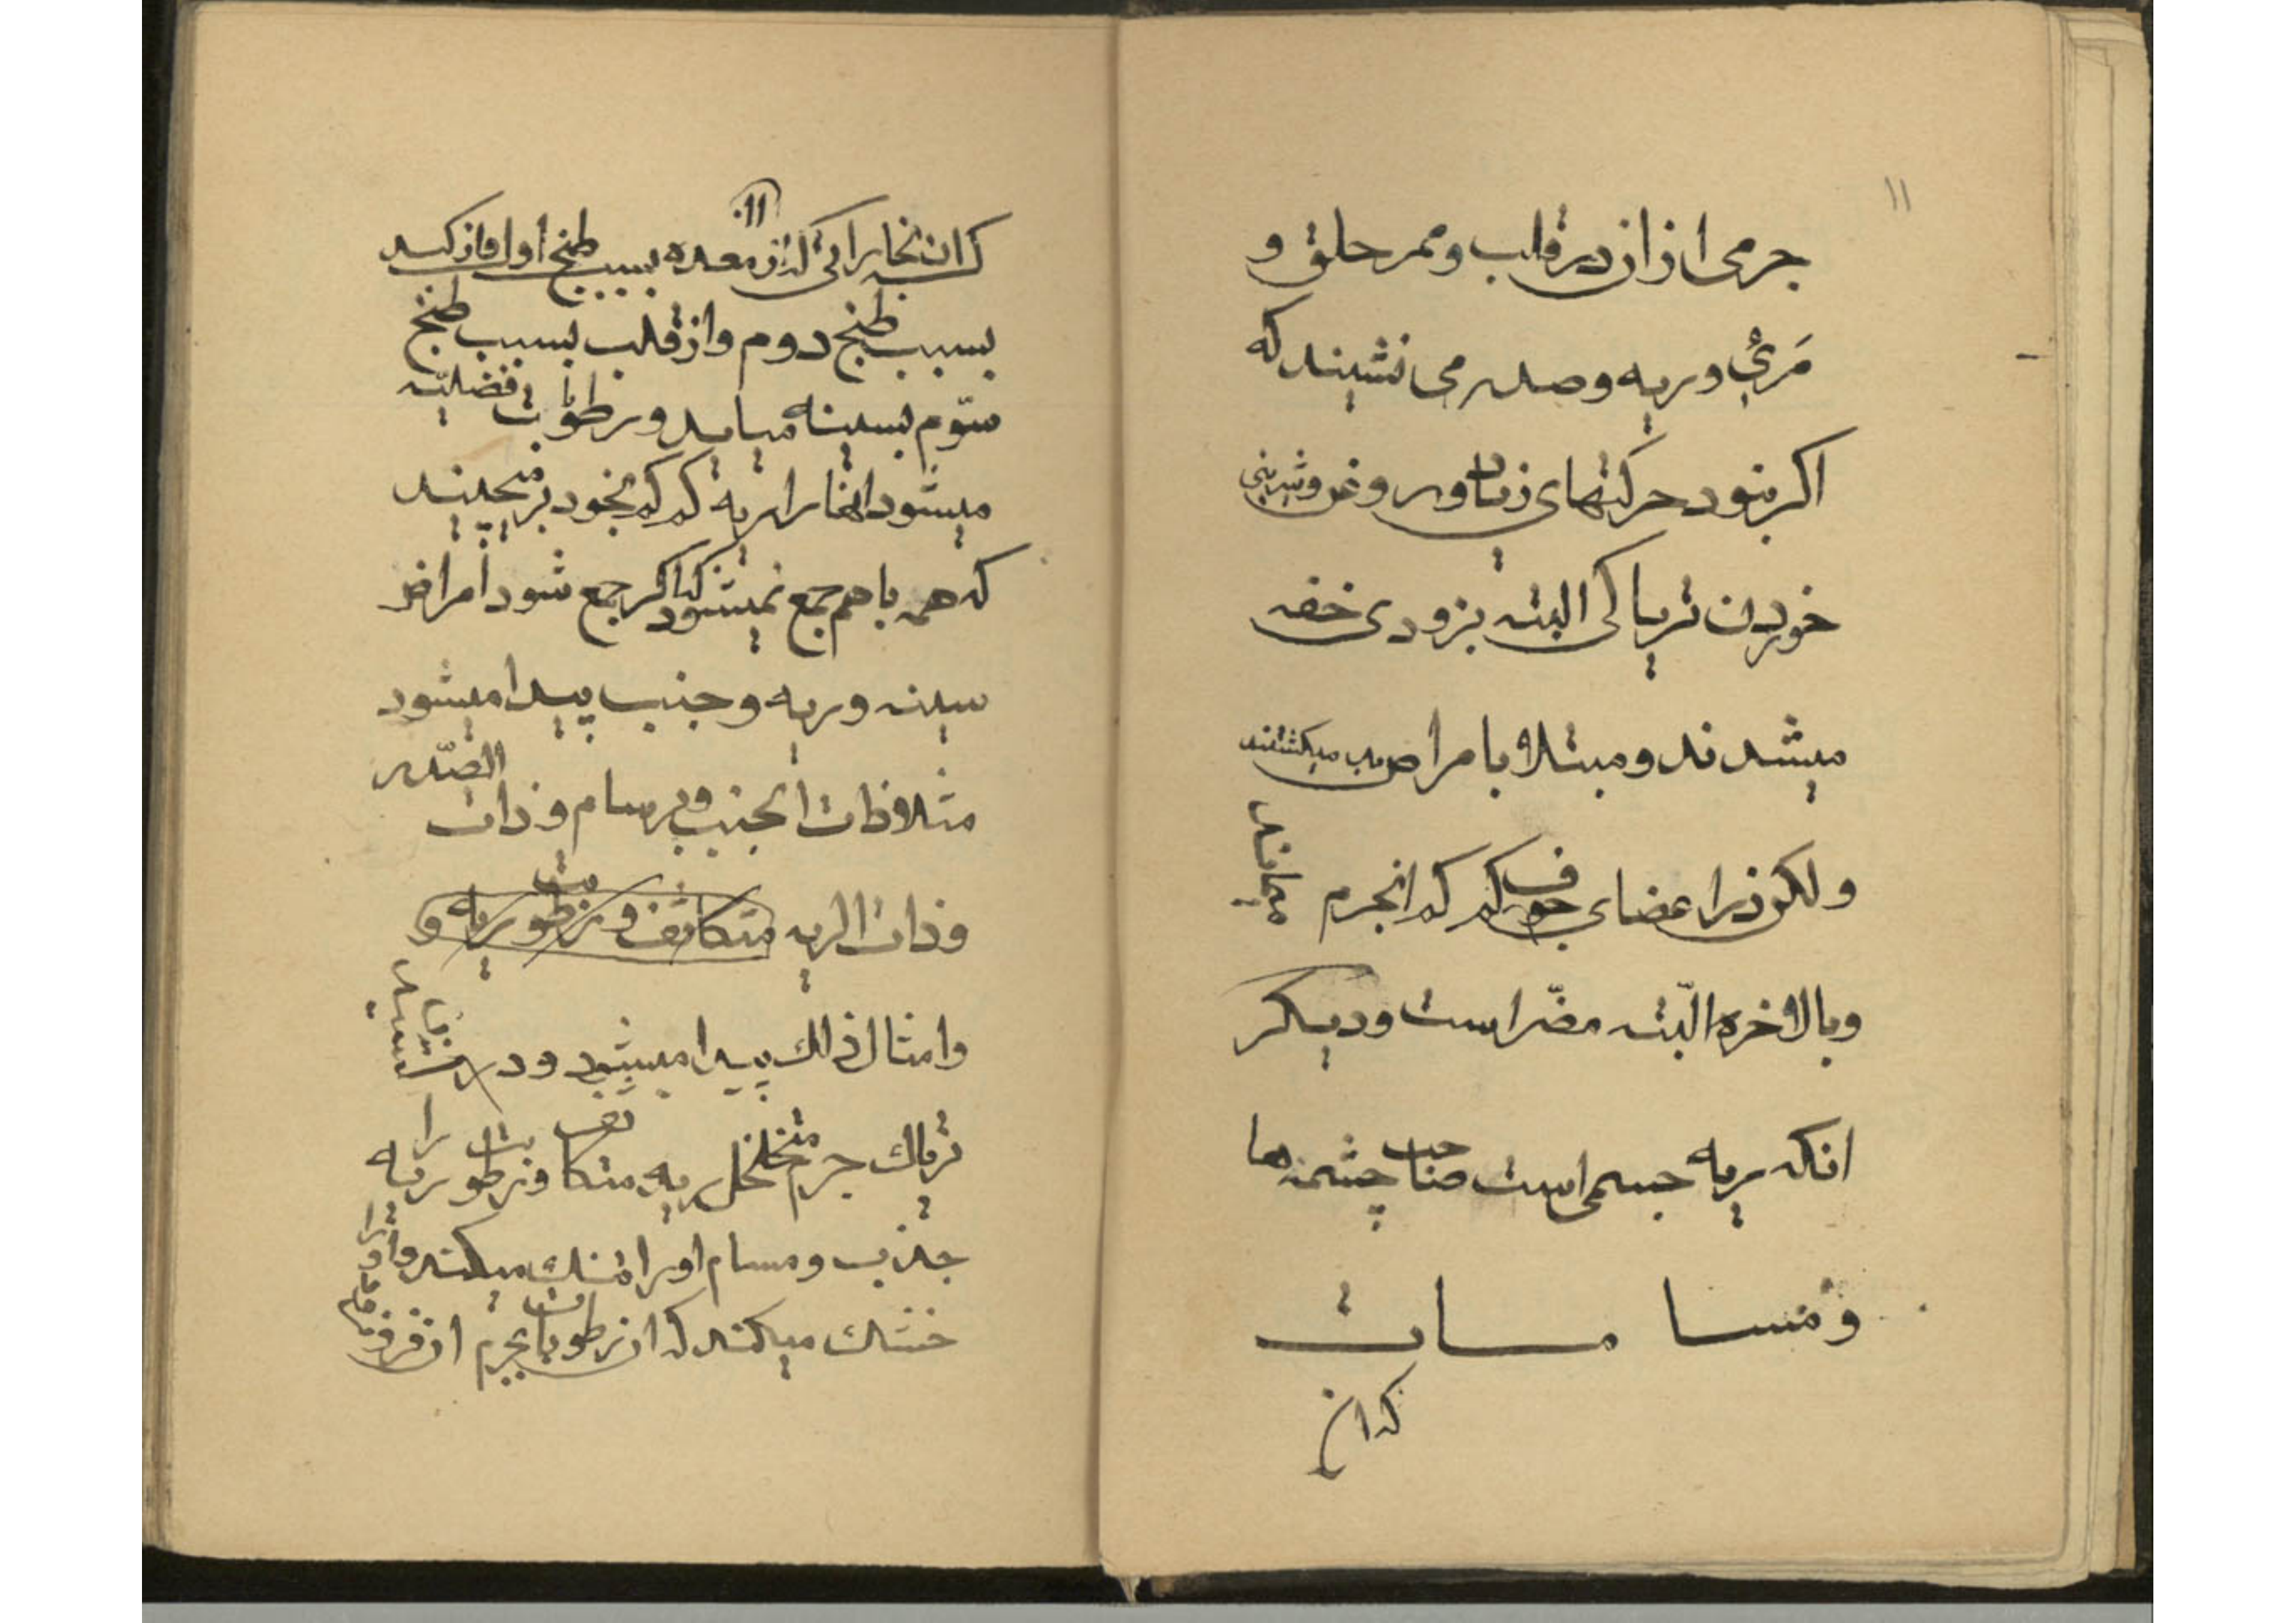 ۱۱
جرمی از ان در قلب و ممر حلق و
مَریٔ و ریه و صدر می نشیند که
اکر نبود حرکتهای زیاد و روغن و شیرینی
خوردن تریاکی البته بزودی خفه
میشدند و مبتلا بامراض میکشتند
ولکن در اعضای جوف کم کم انجرم میماند
و بالاخره البّته مضّر است و دیکر
انکه ریه جسمی است صاحب چشمه ها
و مسامات
که ان
۱۱
که ان بخاراتی که از معده بسبب طبخ اول و از کبد
بسبب طبخ دوم و از قلب بسبب طبخ
سوّم بسینه میاید و رطوبات فضلیّه
میشود انها را ریه کم کم بخود بر میچیند
که همه با هم جمع نمیشود که اکر جمع شود امراض
سینه و ریه و جنب پیدا میشود
مثلا ذات الجنب و برسام و ذات الصّدر
و ذات الریه متکاثف و رطوبت ریه و
و امثال ذالك پیدا میشود و در
تریاك جرم متخلخل ریه متکاثف و رطوبت ریه را
جذب و مسام او را تنك میکند و او را
خشك میکند که ان رطوبات بجرم ان فرو